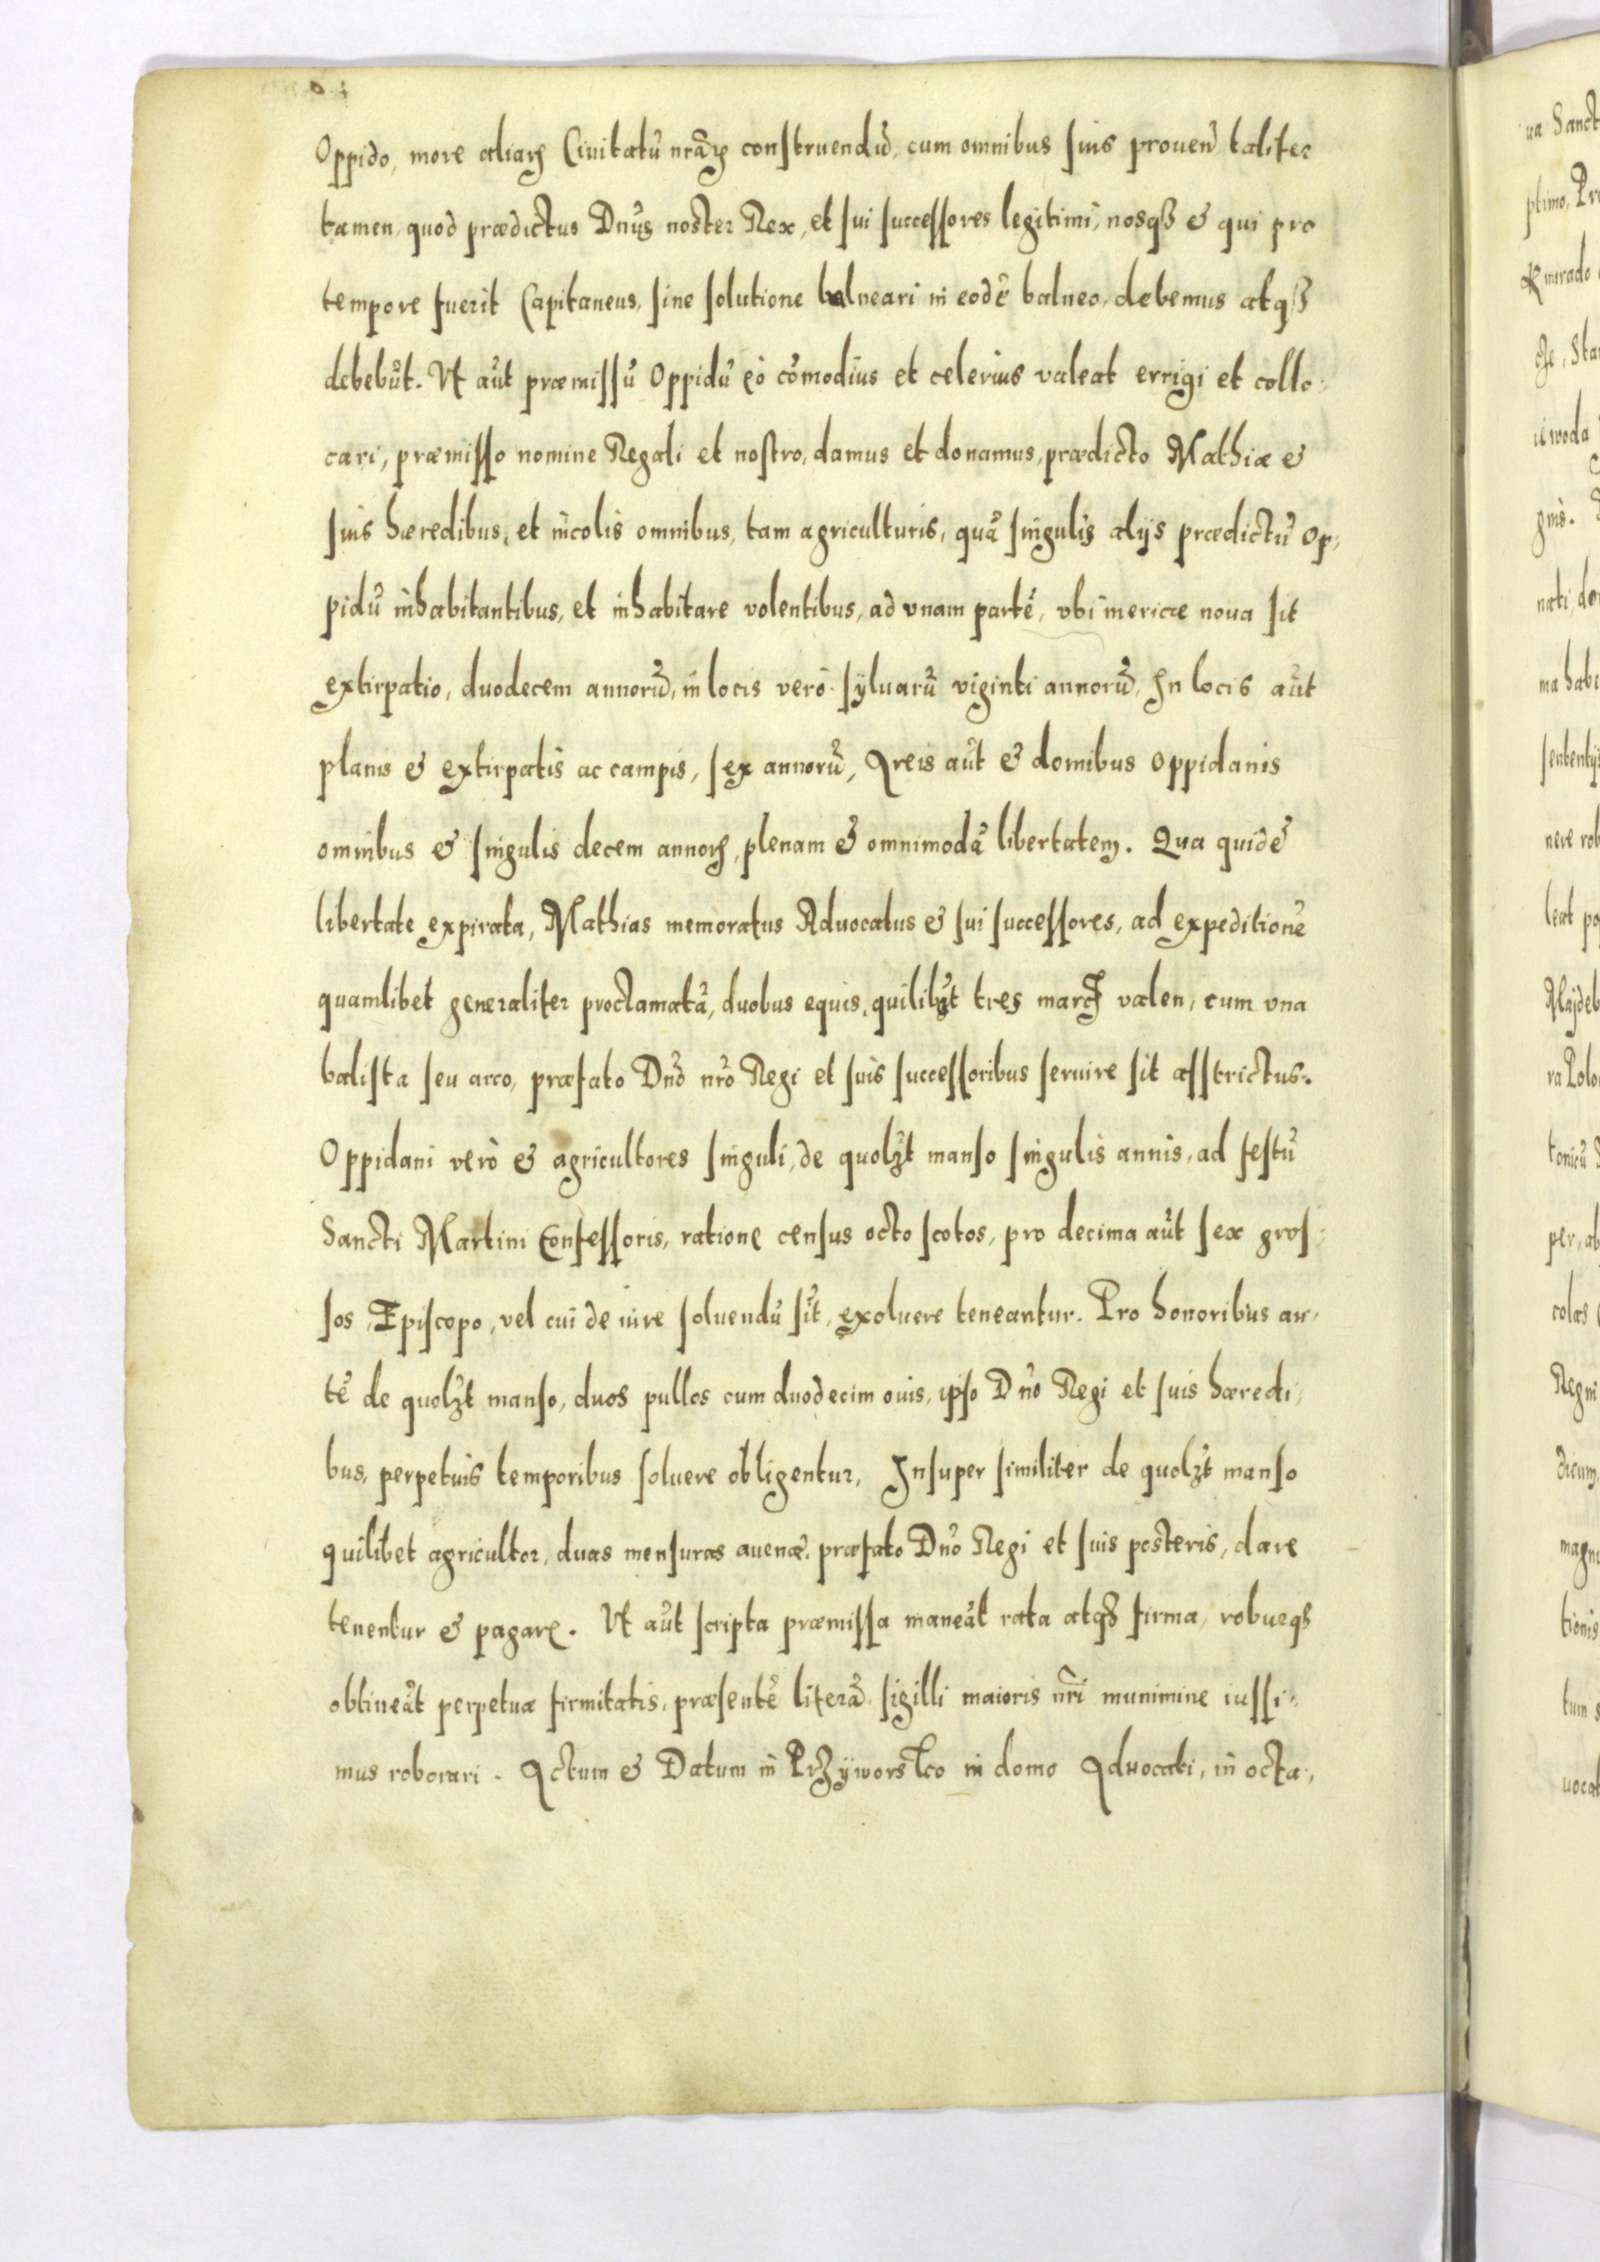 Oppido, more aliaꝝ Ciuitatũ nr̃aꝝ construendũ, cum omnibus suis prouen̄ taliter
tamen, quod prædictus Dnũs noster Rex, et sui successores legitimi, nosqꝫ & qui pro
tempore fuerit Capitaneus, sine solutione balneari in eodẽ balneo, debemus atqꝫ
debebũt. Vt aũt præmissũ Oppidũ eò cõmodius et celerius valeat errigi et collo:
cari, præmisso nomine Regali et nostro, damus et donamus, prædicto Mathiæ &
suis hæredibus, et incolis omnibus, tam agriculturis, quã singulis alijs prædictũ Op:
pidũ inhabitantibus, et inhabitare volentibus, ad vnam partẽ, vbi mericæ noua sit
extirpatio, duodecem annorũ, in locis verò syluarũ viginti annorũ, In locis aũt
planis & extirpatis ac campis, sex annorũ, Areis aũt & domibus oppidanis
omnibus & singulis decem annoꝝ, plenam & omnimodã libertatem. Qua quidẽ
libertate expirata, Mathias memoratus Aduocatus & sui successores, ad expeditionẽ
quamlibet generaliter proclamatã, duobus equis, quilibꝫt tres marcꝭ valen, cum vna
balista seu arco, præfato Dnõ nrõ Regi et suis successoribus seruire sit asstrictus.
Oppidani verò & agricultores singuli, de quolꝫt manso singulis annis, ad festũ
Sancti Martini Confessoris, ratione census octo scotos, pro decima aũt sex gros:
sos Episcopo, vel cui de iure soluendũ sit, exoluere teneantur. Pro honoribus au:
tẽ de quolꝫt manso, duos pullos cum duodecim ouis, ipso Dnõ Regi et suis hæredi:
bus, perpetuis temporibus soluere obligentur, Insuper similiter de quolꝫt manso
quilibet agricultor, duas mensuras auenæ, præfato Dnõ Regi et suis posteris, dare
tenentur & pagare. Vt aũt scripta præmissa maneãt rata atqꝫ firma, roburqꝫ
obtineãt perpetuæ firmitatis, præsentẽ literã sigilli maioris nr̃i munimine iussi:
mus roborari. Actum & Datum in Przyworsko in domo Aduocati, in octa: